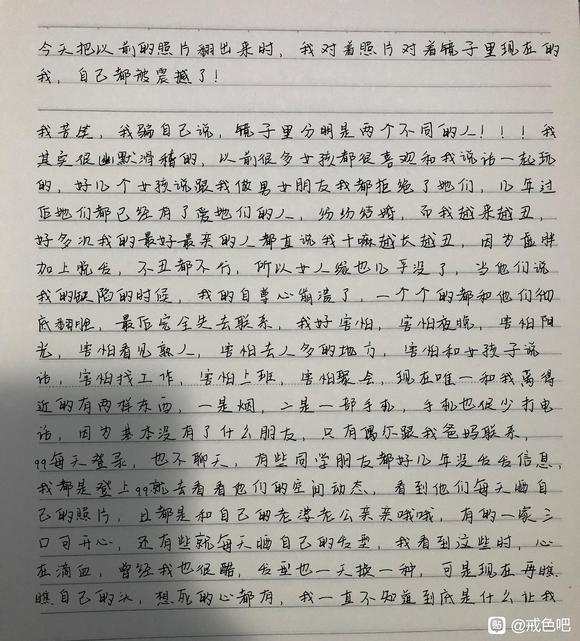 今天把以前的照片翻出来时，我对着照片对着镜子里现在的
我，自己都被震撼了！
我苦笑，我骗自己说，镜子里分明是两个不同的人！！！我
其实很幽默滑稽的，以前很多女孩都很喜欢和我说话一起玩
的，好几个女孩说跟我做男女朋友我都拒绝了她们，几年过
后她们都已经有了爱她们的人，纷纷结婚，而我越来越丑，
好多次我的最好最亲的人都直说我干嘛越长越丑，因为虚胖
加上脱发，不丑都不行，所以女人缘也几乎没了，当他们说
我的缺陷的时候，我的自尊心崩溃了，一个个的都和他们彻
底翻脸，最后完全失去联系，我好害怕，害怕夜晚，害怕阳
光，害怕看见熟人，害怕去人多的地方，害怕和女孩子说
话，害怕找工作，害怕上班，害怕聚会，现在唯一和我离得
近的有两样东西，一是烟，二是一部手机，手机也很少打电
话，因为基本没有了什么朋友，只有偶尔跟我爸妈联系，
qq每天登录，也不聊天，有些同学朋友都好几年没发信息，
我都是登上qq就去看看他们的空间动态，看到他们每天晒自
己的照片，且都是和自己的老婆老公亲亲哦哦，有的一家三
口可开心，还有些就每天晒自己的发型，我看到这些时，心
在滴血，曾经我也很酷，发型也一天换一种，可是现在再瞧
瞧自己的头，想死的心都有，我一直不知道到底是什么让我
贴 @戒色吧